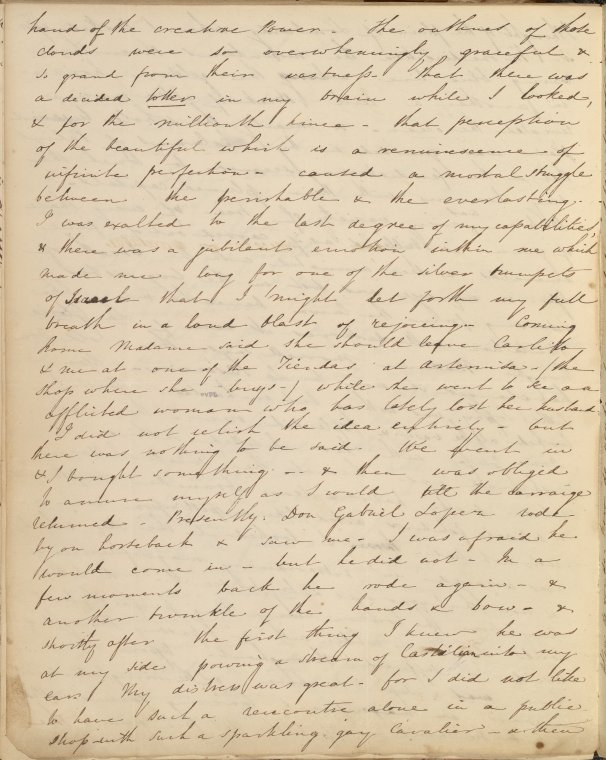 hand of the creative Power. The outlines of those
clouds were so overwhelmingly graceful &
so grand from their vastness that there was
a decided totter in my brain while I looked,
& for the millionth time - that perception
of the beautiful which is a reminiscence of
infinite perfection - caused a mortal struggle
between the perishable & the everlasting.
I was exalted to the last degree of my capabilities,
& there was a jubilant emotion within me which
made me long for one of the silver trumpets
of Israel that I might let forth my full
breath in a loud blast of rejoicing - Coming
home Madame said she should leave Carlito
& me at - one of the Tiendas at Artemisa - (the
shop where she buys -) while she went to see a
afflicted woman who has lately lost her husband.
I did not relish the idea entirely - but
there was nothing to be said. We went in
& I bought something - & then was obliged
to amuse myself as I would till the carriage
returned - Presently, Don Gabriel rode
by on horseback & saw me - I was afraid he
would come in - but he did not - In a
few moments back he rode again - &
another twinkle of the hands & bow - &
shortly after the first thing I knew he was
at my side pouring a stream of Castilian into my
ear. My distress was great - for I did not like
to have such a rencontre alone in a public
shop with such a sparkling, gay Cavalier - & then